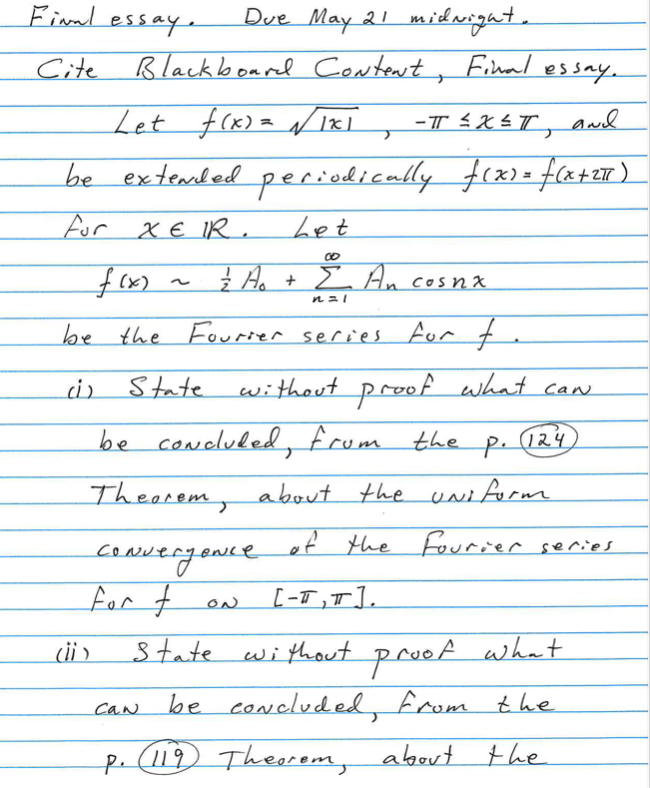 Final essay. Due May 21 midnight.
Cite Blackboard Content, Final essay.
Let f(x) = √|x| , -π ≤ x ≤ π, and
be extended periodically f(x) = f(x+2π)
for x ∈ ℝ. Let
f(x) ~ ½ A₀ + ∞∑n=1 Aₙ cos nx
be the Fourier series for f.
(i) State without proof what can
be concluded, from the p. (124)
Theorem, about the uniform
convergence of the Fourier series
for f on [-π,π].
(ii) State without proof what
can be concluded, from the
p. (119) Theorem, about the